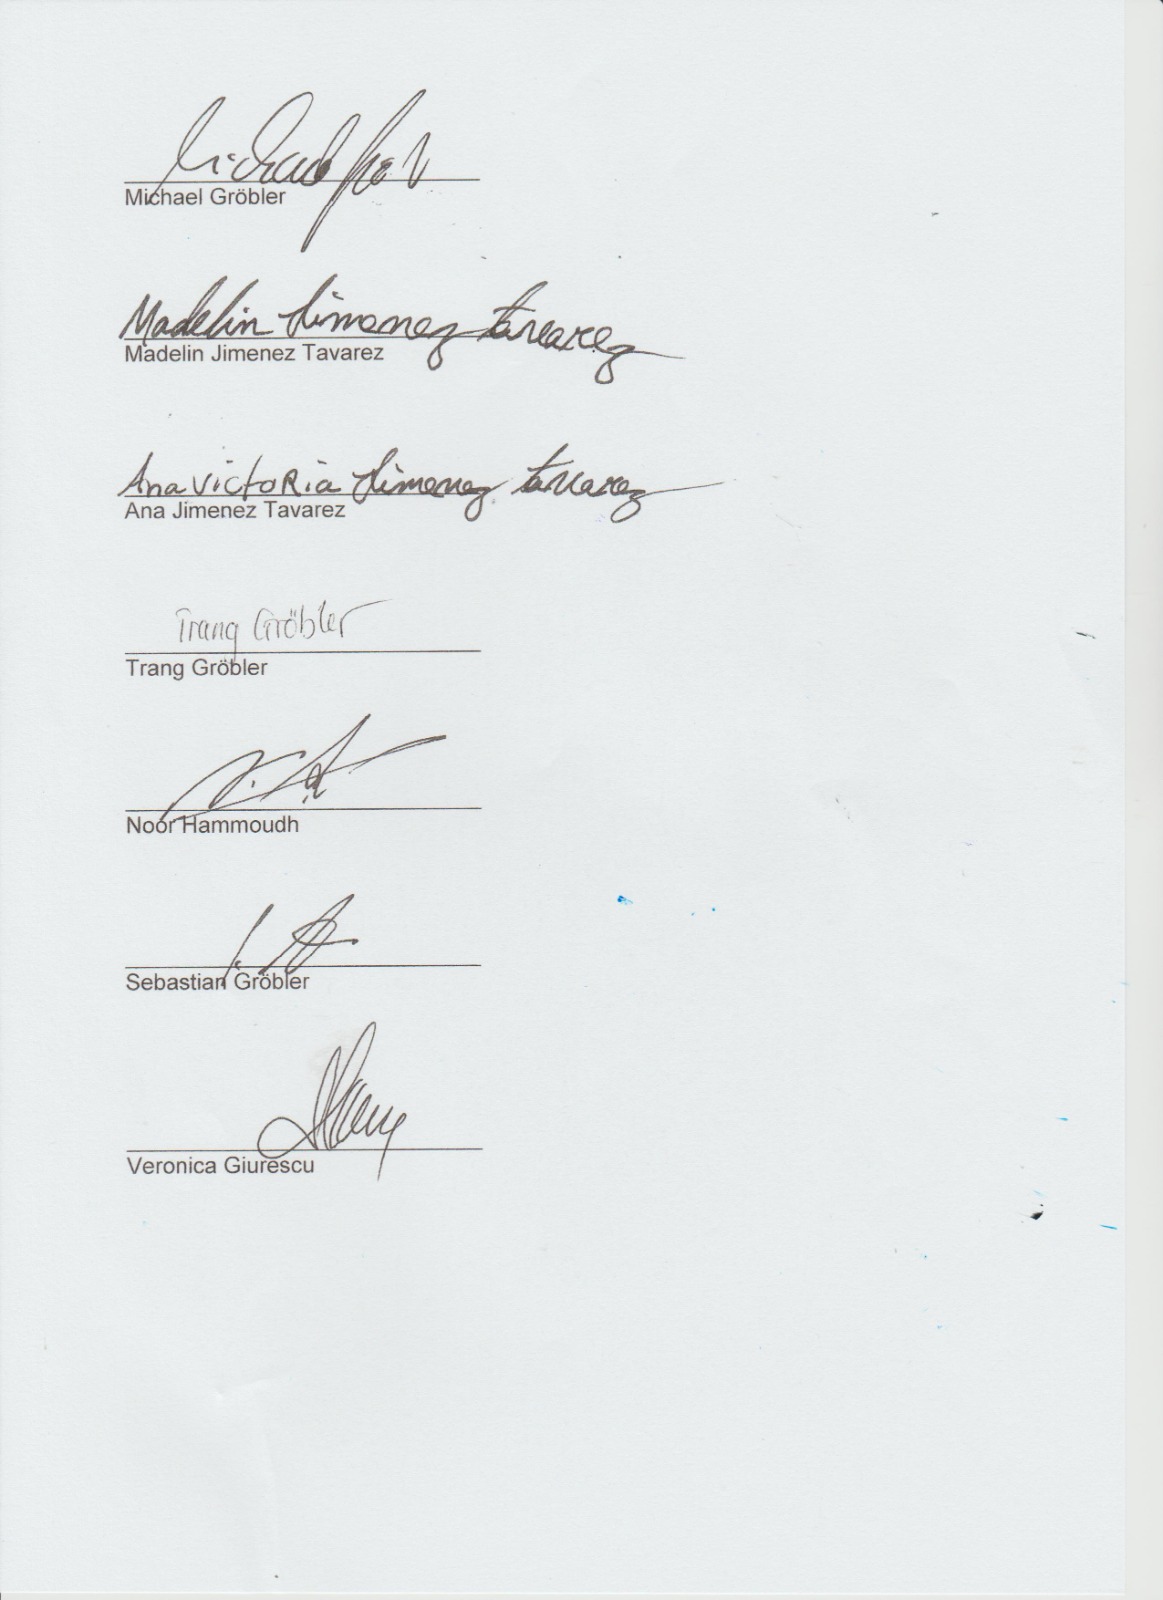 Michael Gröbler
Madelin Jimenez Tavarez
Madelin Jimenez Tavarez
Anavictoria Jimenez Tavarez
Ana Jimenez Tavarez
Trang Gröbler
Trang Gröbler
Noor Hammoudh
Sebastian Gröbler
Veronica Giurescu